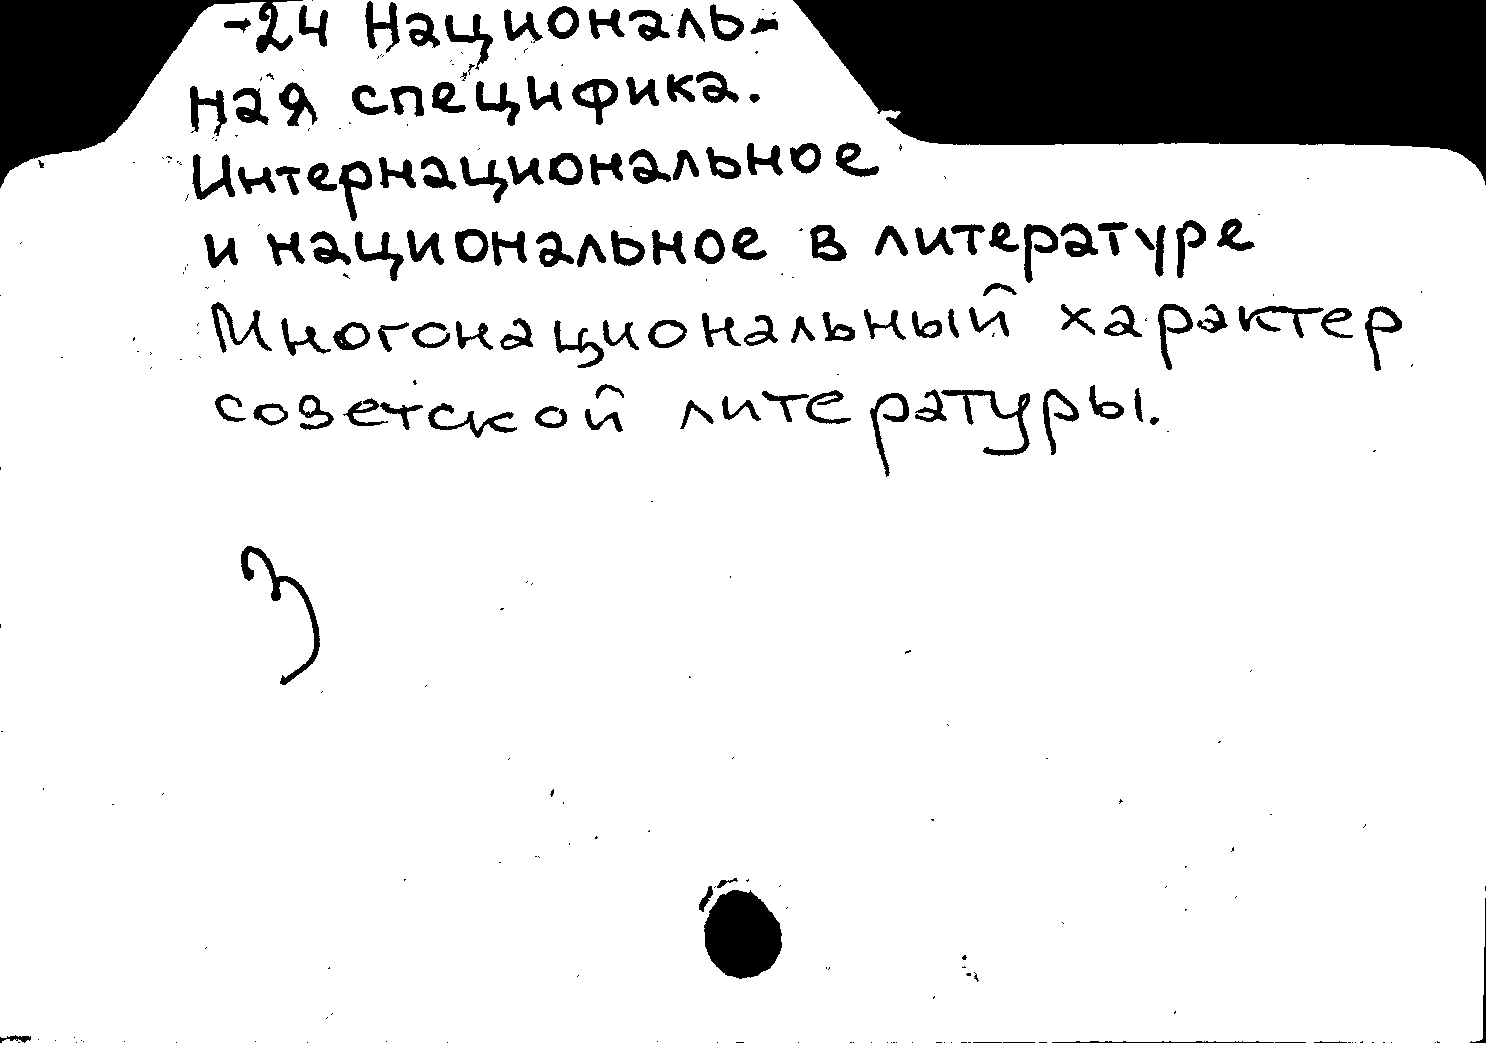 -24 Националь-
ная специфика.
Интернациональное
и национальное в литературе
Многонациональный характер
советской литературы.
З